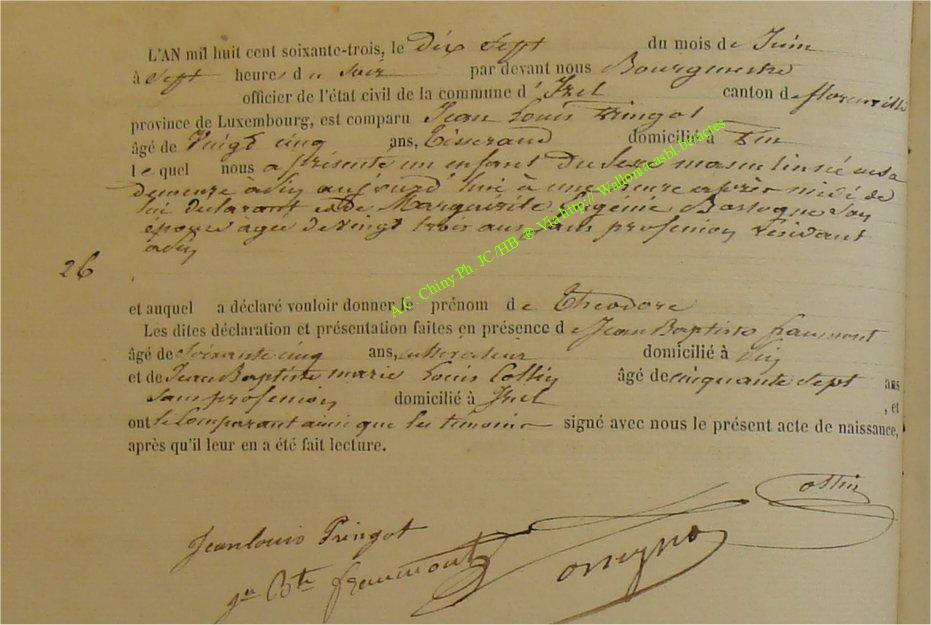 L'AN mil huit cent soixante-trois, le Dix Sept du mois de Juin
à Sept heure du soir par devant nous Bourgmestre
officier de l'état civil de la commune d'Izel canton de florenville
province de Luxembourg, est comparu Jean Louis Pringot
âgé de Vingt cinq ans, Tisserand domicilié à
lequel nous a présenté un enfant du sexe masculin né en sa
demeure aujourd'hui à une heure après midi de
lui declarant et de Marguerite Eugénie Bossogne son
épouse agée de Vingt trois ans sans profession
26
et auquel a déclaré vouloir donner le prénom de Théodore
Les dites déclaration et présentation faites en présence de Jean Baptiste fraumont
âgé de Soixante cinq ans, cultivateur domicilié à
et de Jean Baptiste marie Louis Collin âgé de cinquante sept ans
Sans profession domicilié à Izel , et
ont le comparant ainsi que les temoins signé avec nous le présent acte de naissance,
après qu'il leur en a été fait lecture.
A.G. Chiny Ph. JC /HB ® Via http:// Wallonia-asbl benacles
Jean louis Pringot
jn Bte fraumont